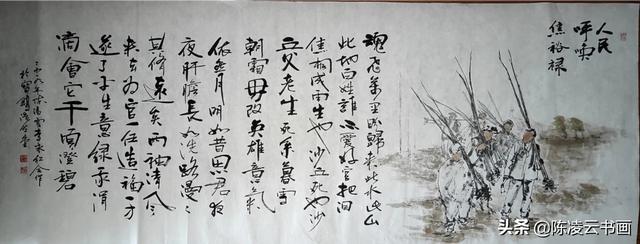 人民
呼唤
焦裕禄
魂飞萬里盼歸来此水此山
此地百姓誰不爱好官把泪
焦桐成雨生也沙丘死也沙
丘父老生死系暮雪
朝霜毋改英雄意气
依然月明如昔思君夜
夜肝膽長如洗路漫漫
其修遠矣两袖清风
来去为官一任造福一方
遂了平生意绿我涓
滴會它千頃澄碧
头条 @陈凌云书画